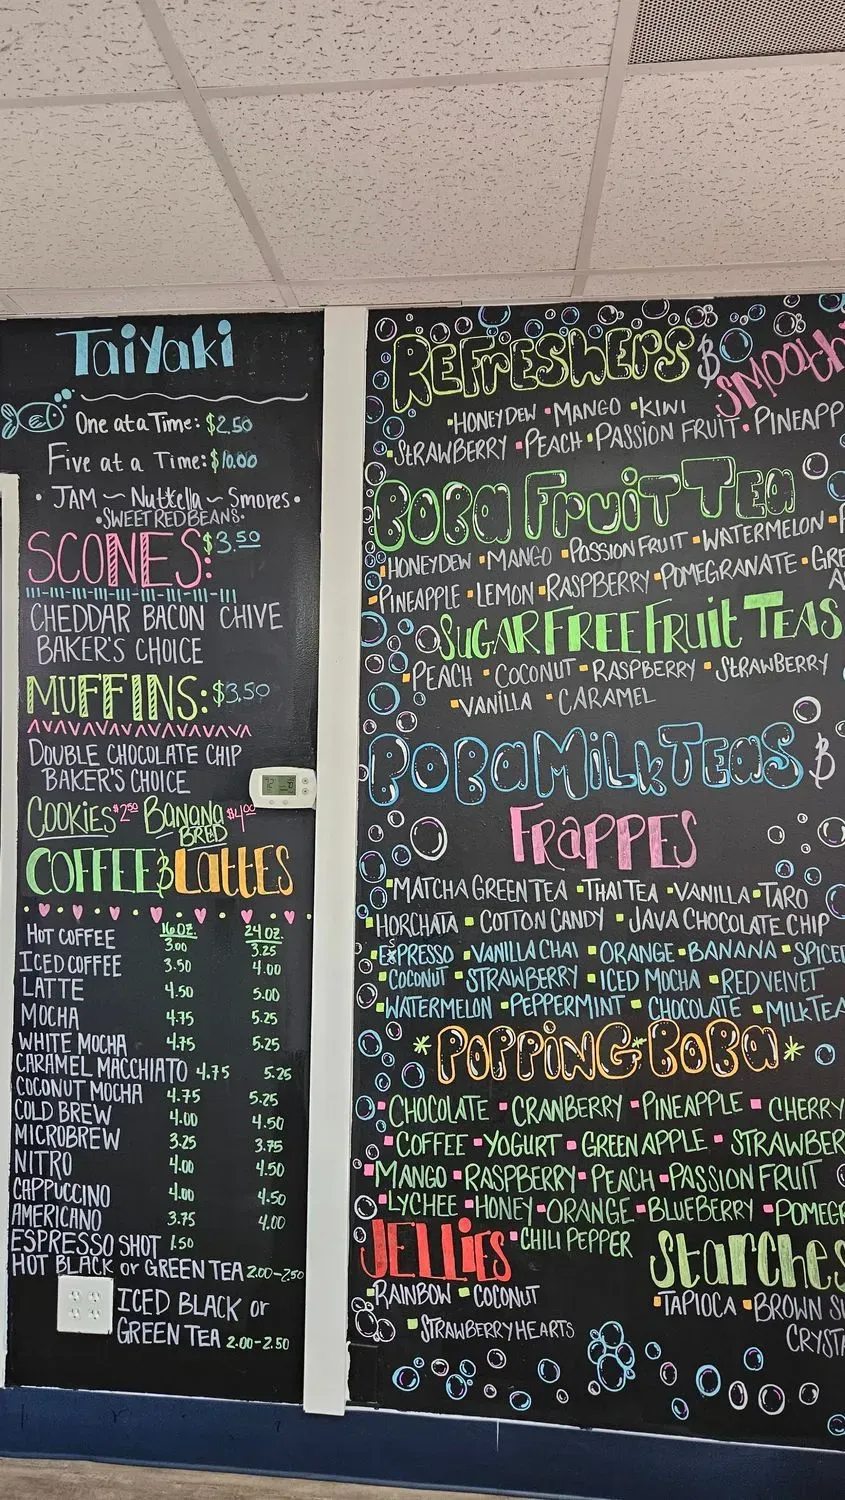 Taiyaki
One at a Time: $2.50
Five at a Time: $10.00
• JAM ~ Nuttella ~ Smores •
• SWEET RED BEANS •
SCONES: $3.50
CHEDDAR BACON CHIVE
BAKER'S CHOICE
MUFFINS: $3.50
DOUBLE CHOCOLATE CHIP
BAKER'S CHOICE
COOKIES $2.50 BANANA BRED $4.00
COFFEE & LATTES
16 OZ. 24 OZ.
HOT COFFEE 3.00 3.25
ICED COFFEE 3.50 4.00
LATTE 4.50 5.00
MOCHA 4.75 5.25
WHITE MOCHA 4.75 5.25
CARAMEL MACCHIATO 4.75 5.25
COCONUT MOCHA 4.75 5.25
COLD BREW 4.00 4.50
MICROBREW 3.25 3.75
NITRO 4.00 4.50
CAPPUCCINO 4.00 4.50
AMERICANO 3.75 4.00
ESPRESSO SHOT 1.50
HOT BLACK or GREEN TEA 2.00-2.50
ICED BLACK or
GREEN TEA 2.00-2.50
REFRESHERS & SMOOTHI
• HONEYDEW • MANGO • KIWI
• STRAWBERRY • PEACH • PASSION FRUIT • PINEAPP
BOBA FRUIT TEA
• HONEYDEW • MANGO • PASSION FRUIT • WATERMELON •
• PINEAPPLE • LEMON • RASPBERRY • POMEGRANATE • GRE
SUGAR FREE FRUIT TEAS
• PEACH • COCONUT • RASPBERRY • STRAWBERRY
• VANILLA • CARAMEL
BOBA MILK TEAS &
FRAPPES
• MATCHA GREEN TEA • THAI TEA • VANILLA • TARO
• HORCHATA • COTTON CANDY • JAVA CHOCOLATE CHIP
• ESPRESSO • VANILLA CHAI • ORANGE • BANANA • SPICED
• COCONUT • STRAWBERRY • ICED MOCHA • RED VELVET
• WATERMELON • PEPPERMINT • CHOCOLATE • MILK TEA
* POPPING BOBA *
• CHOCOLATE • CRANBERRY • PINEAPPLE • CHERRY
• COFFEE • YOGURT • GREEN APPLE • STRAWBER
• MANGO • RASPBERRY • PEACH • PASSION FRUIT
• LYCHEE • HONEY • ORANGE • BLUEBERRY • POMEGR
• CHILI PEPPER
JELLIES
• RAINBOW • COCONUT
• STRAWBERRY HEARTS
Starches
• TAPIOCA • BROWN SU
CRYSTA